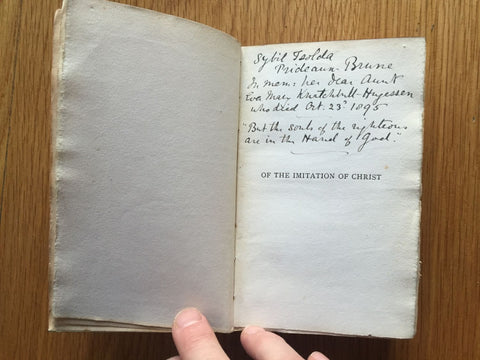 Sybil Isolda
Prideaux Brune
In mem: her dear Aunt
Eva Mary Knatchbull-Hugessen
who died Oct. 23rd 1895
"But the souls of the righteous
are in the Hand of God."
OF THE IMITATION OF CHRIST